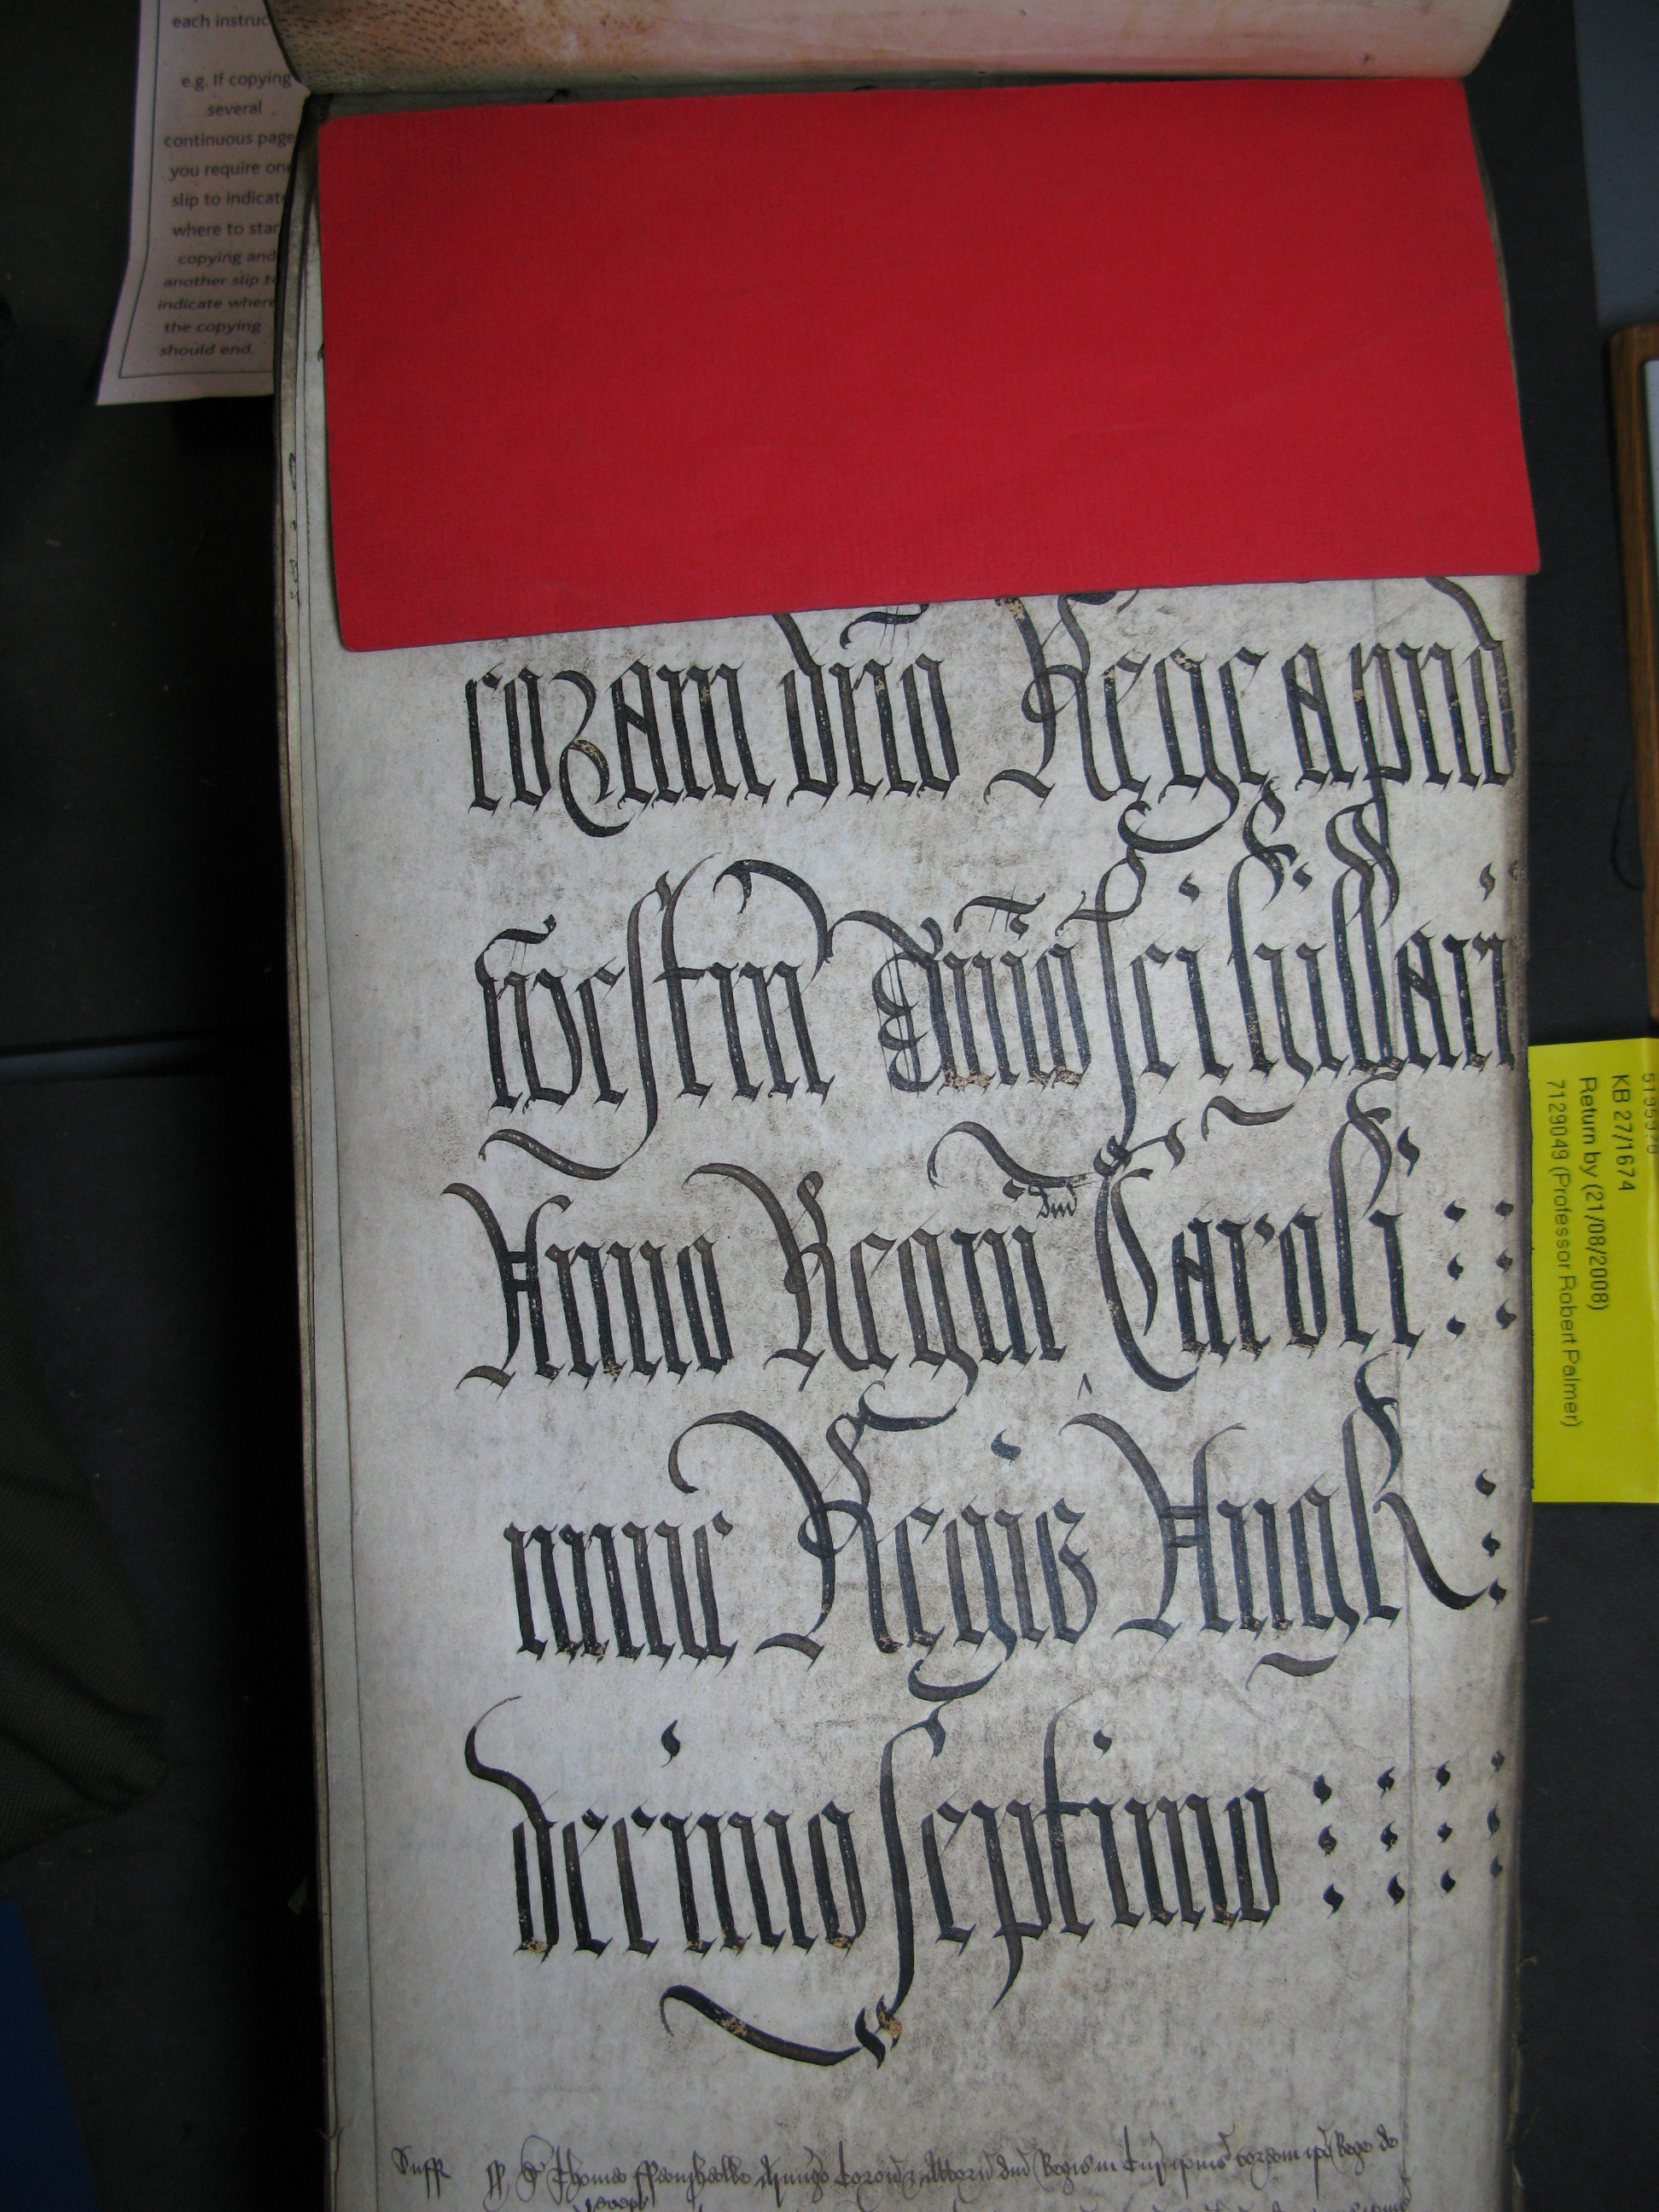 each instruc
e.g. If copying
several
continuous page
you require one
slip to indicate
where to star
copying and
another slip to
indicate where
the copying
should end.
coram dño Rege apud
westm̃ Termĩo sci hillarii
Anno Regni dñi Caroli
nunc Regis Angł
decimo septimo
5195976
KB 27/1674
Return by (21/08/2008)
7129049 (Professor Robert Palmer)
Suff
Thomas ffanshawe